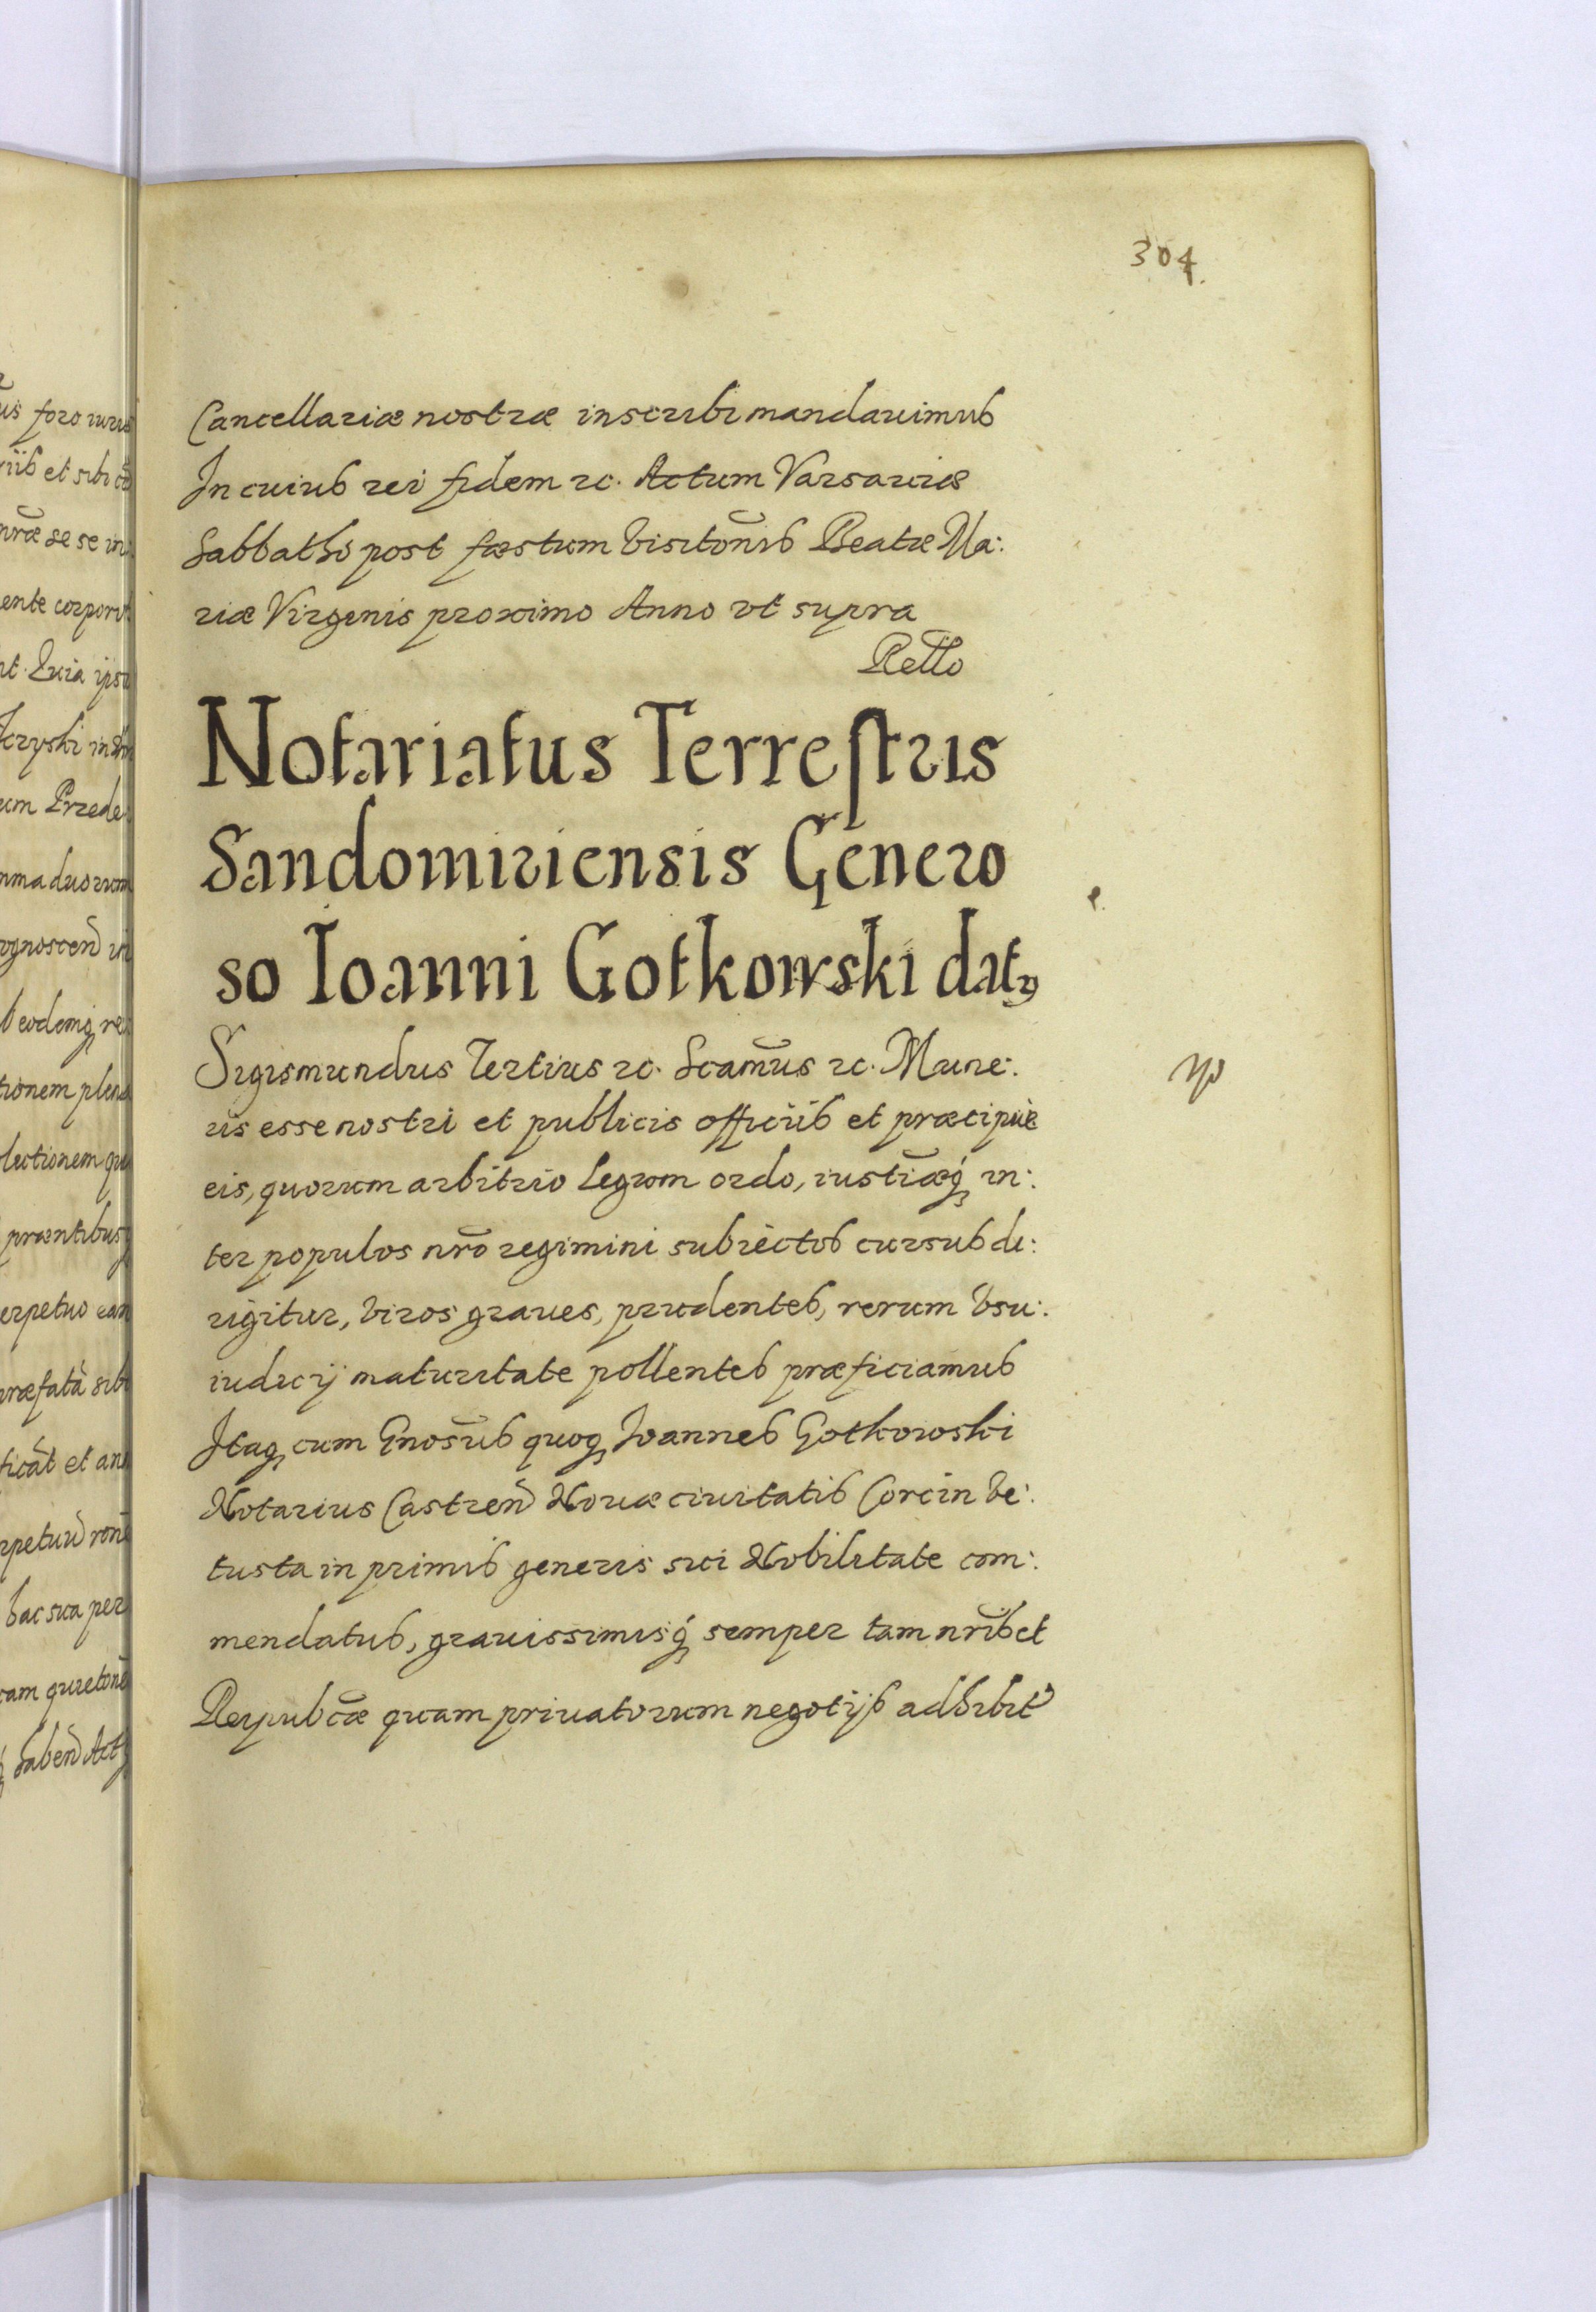 304.
Cancellariæ nostræ inscribi mandauimus
In cuius rei fidem zc. Actum Varsauiæ
Sabbatho post fæstum Visitõnis Beatæ Ma:
riæ Virginis proximo Anno vt supra
Rello
Notariatus Terrestris
Sandomiriensis Genero
so Ioanni Gotkowski datꝫ
Sigismundus Tertius zc. Scamũs zc. Mune:
ris esse nostri et publicis officiis et præcipuè
eis, quorum arbitrio legum ordo, iustiæq́ꝫ in:
ter populos nr̃o regimini subiectos cursus di:
rigitur, viros graues, prudentes, rerum vsu:
iudicij maturitate pollentes præficiamus
Itaqꝫ cum Gnosus quoqꝫ Joannes Gotkowski
Notarius Castren̄ Nouæ ciuitatis Corcin ve:
tusta in primis generis sui Nobilitate com:
mendatus, grauissimisq́ꝫ semper tam nr̃is et
Reipubcæ quam priuatorum negotijs adhibit9
us foro iuris
iis et sibi
nræ se se in
ente corporis
nt. Quia ipsi
um Przede
mma duorum
eodemqꝫ re
tionem plena
lectionem
præntibus
erpetuo
ræfatã sibi
ficãt et
hac sua per
habeñ Act